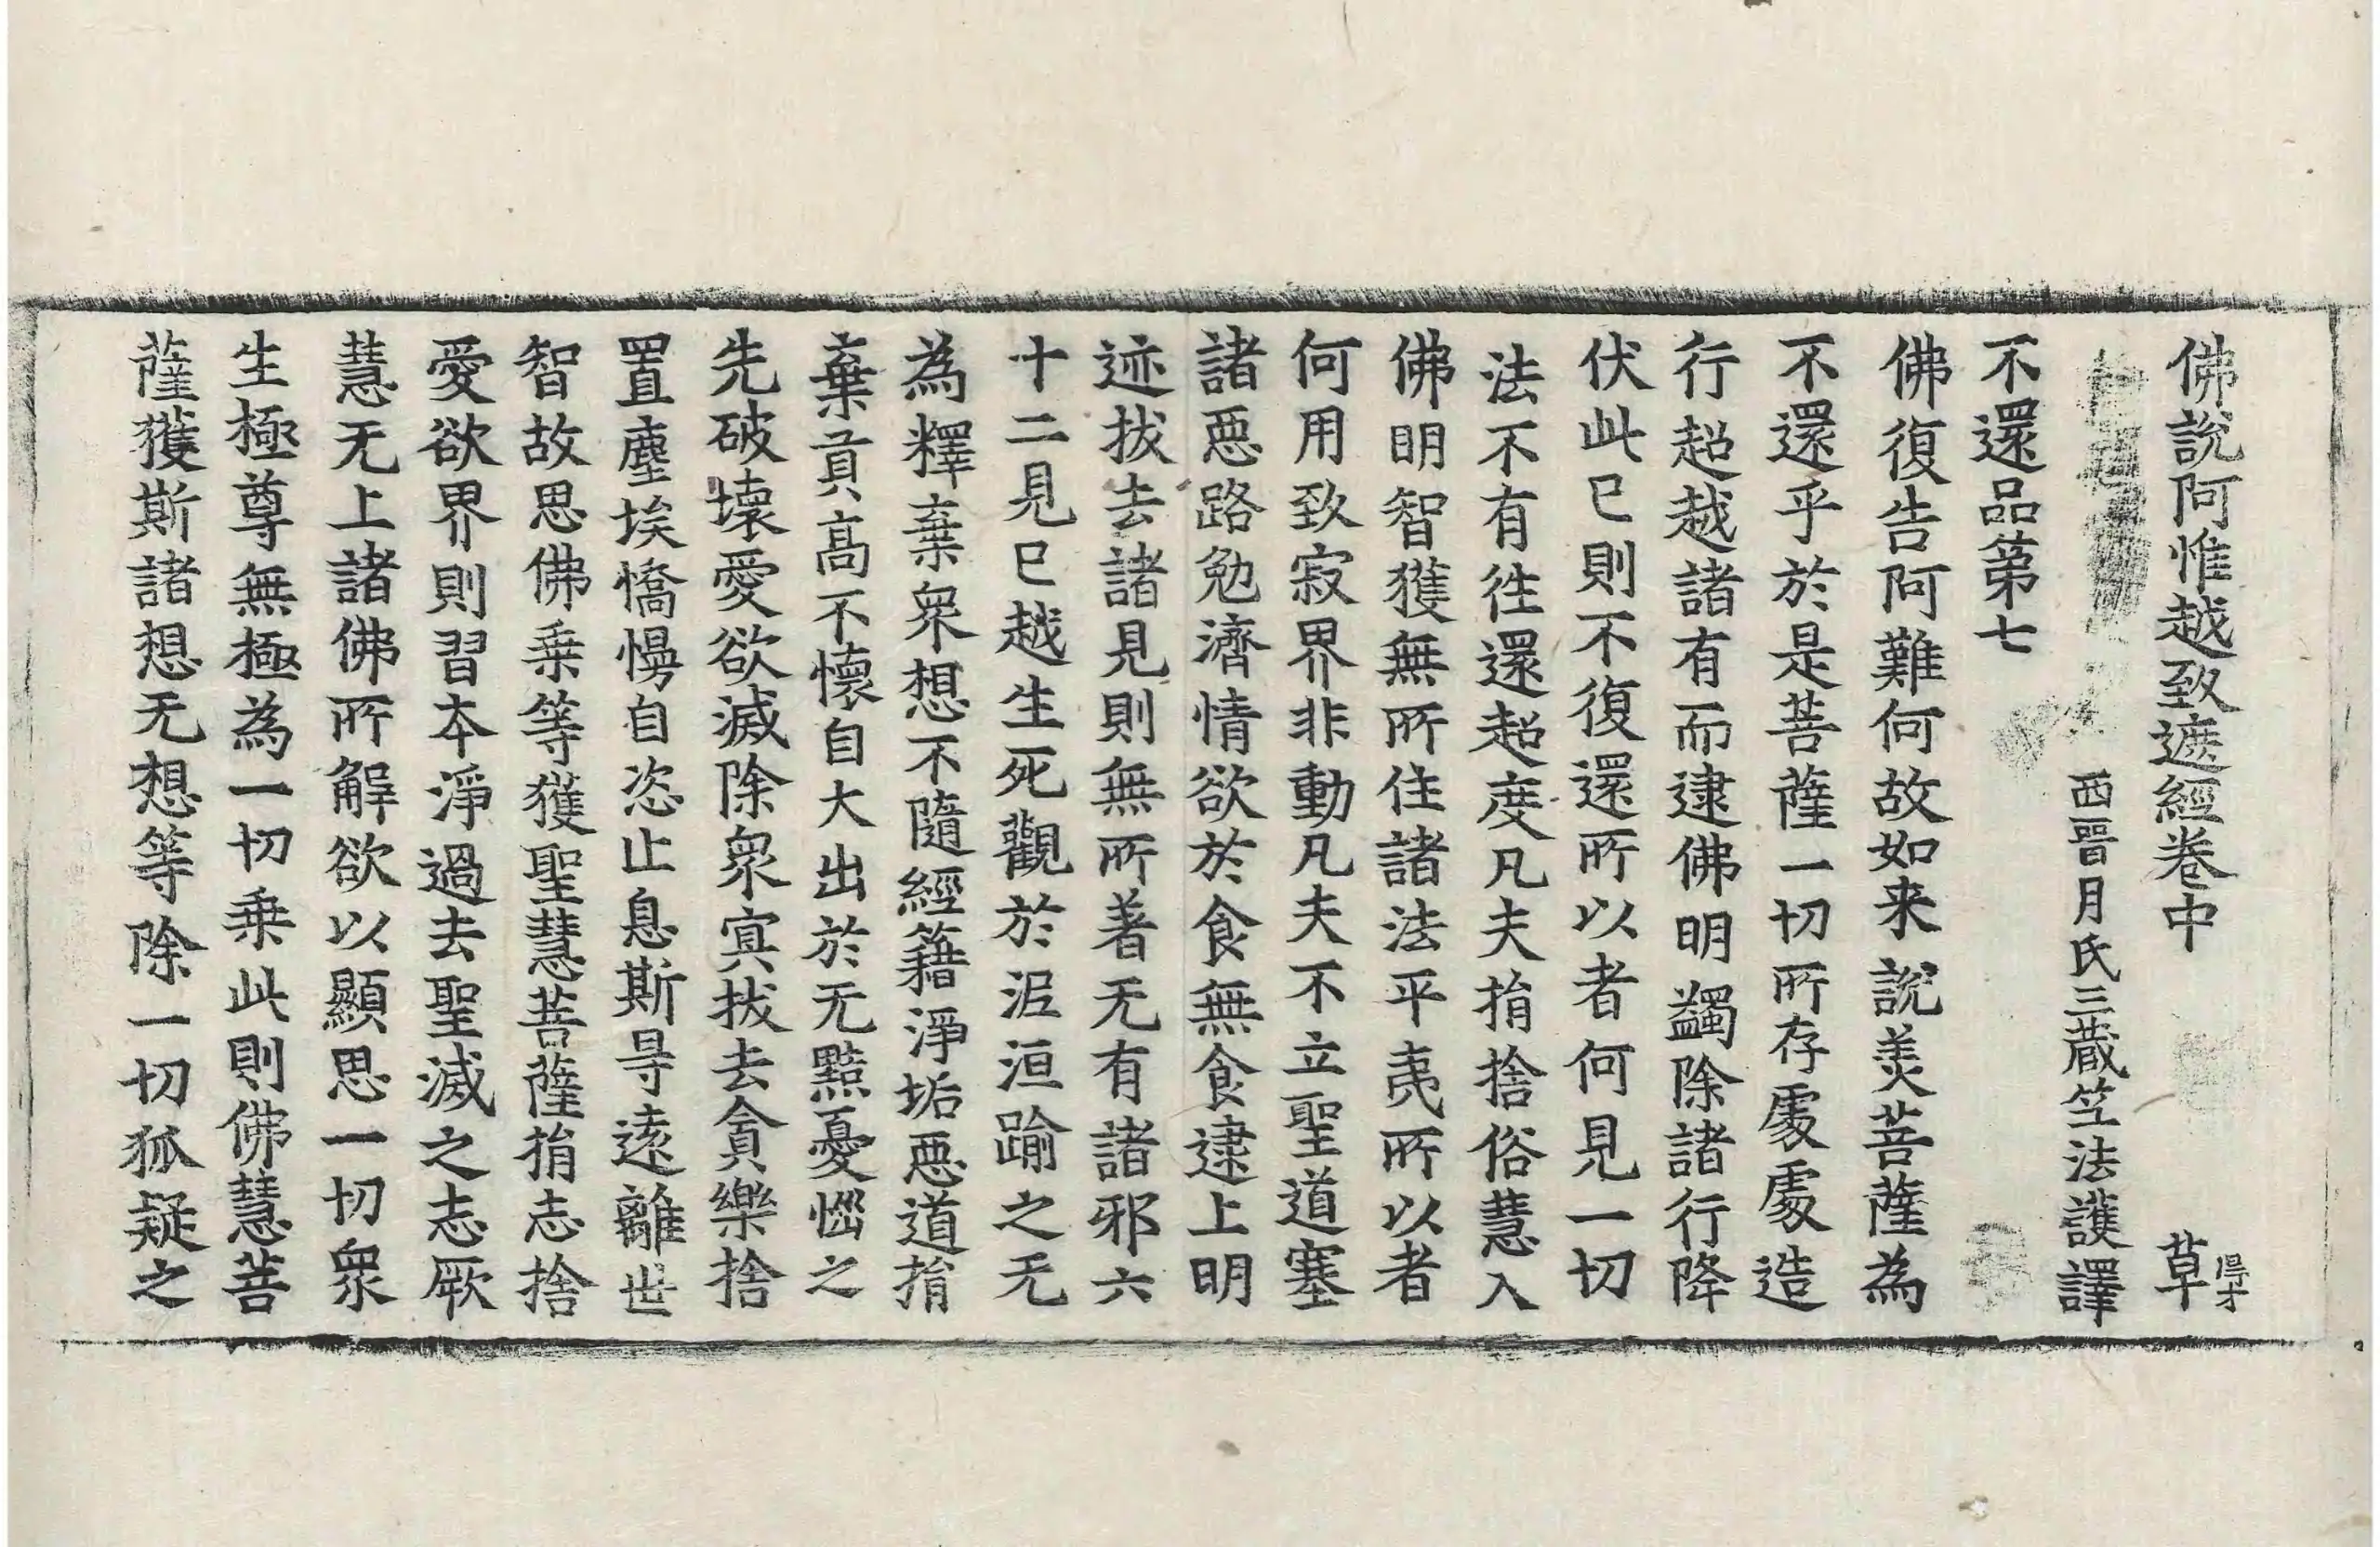 佛說阿惟越致遮經卷中 草 㝵才
西晉月氏三藏竺法護譯
不還品第七
佛復告阿難何故如来說羙菩薩為
不還乎於是菩薩一切所存處處造
行超越諸有而逮佛明蠲除諸行降
伏此已則不復還所以者何見一切
法不有徃還超度凡夫捐捨俗慧入
佛明智獲無所住諸法平夷所以者
何用致寂界非動凡夫不立聖道塞
諸惡路勉濟情欲於食無食逮上明
迹拔去諸見則無所著无有諸邪六
十二見已越生死觀於泥洹踰之无
為釋棄衆想不隨經籍淨垢惡道捐
棄貢高不懷自大出於无黠憂惱之
先破壞愛欲滅除衆㝠拔去貪樂捨
置塵埃憍慢自恣止息斯㝵遠離世
智故思佛乗等獲聖慧菩薩捐志捨
愛欲界則習本淨過去聖滅之志厥
慧无上諸佛所解欲以顯思一切衆
生極尊無極為一切乗此則佛慧菩
薩獲斯諸想无想等除一切狐疑之